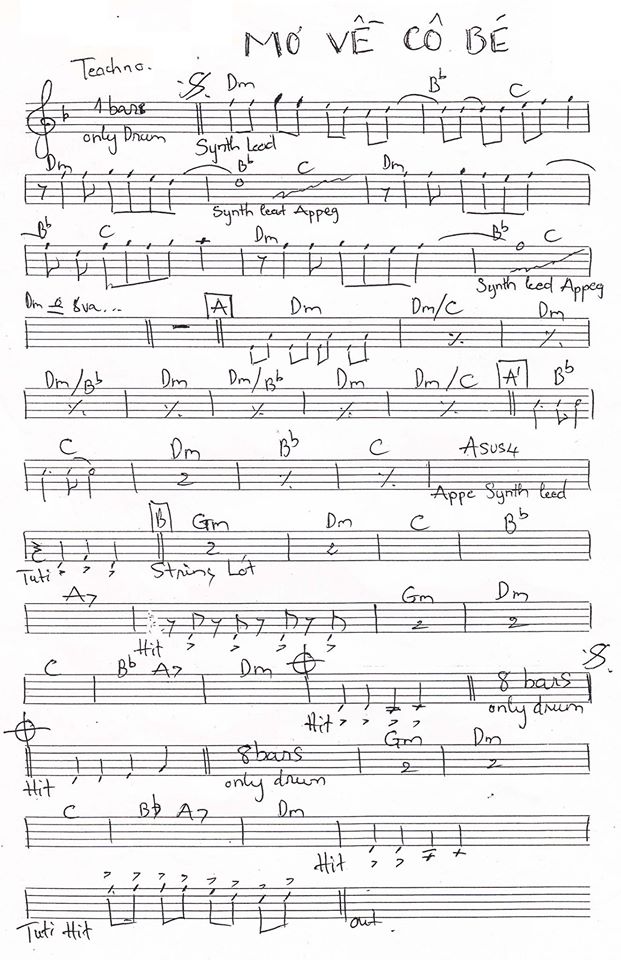 MƠ VỀ CÔ BÉ
Teachno.
Dm Bb C
1 bars
only Drum
Synth Leed
Dm Bb C Dm
Synth leed Appeg
Bb C Dm Bb C
Synth leed Appeg
Dm 8va... A Dm Dm/C Dm
Dm/Bb Dm Dm/Bb Dm Dm/C A' Bb
C Dm Bb C Asus4
2
Appe Synth leed
B Gm Dm C Bb
2 2
Tuti String Lót
A7 Gm Dm
2 2
Hit
C Bb A7 Dm
8 bars
only drum
Hit
Gm Dm
8 bars 2 2
Hit only drum
C Bb A7 Dm
Hit
Tuti Hit out.